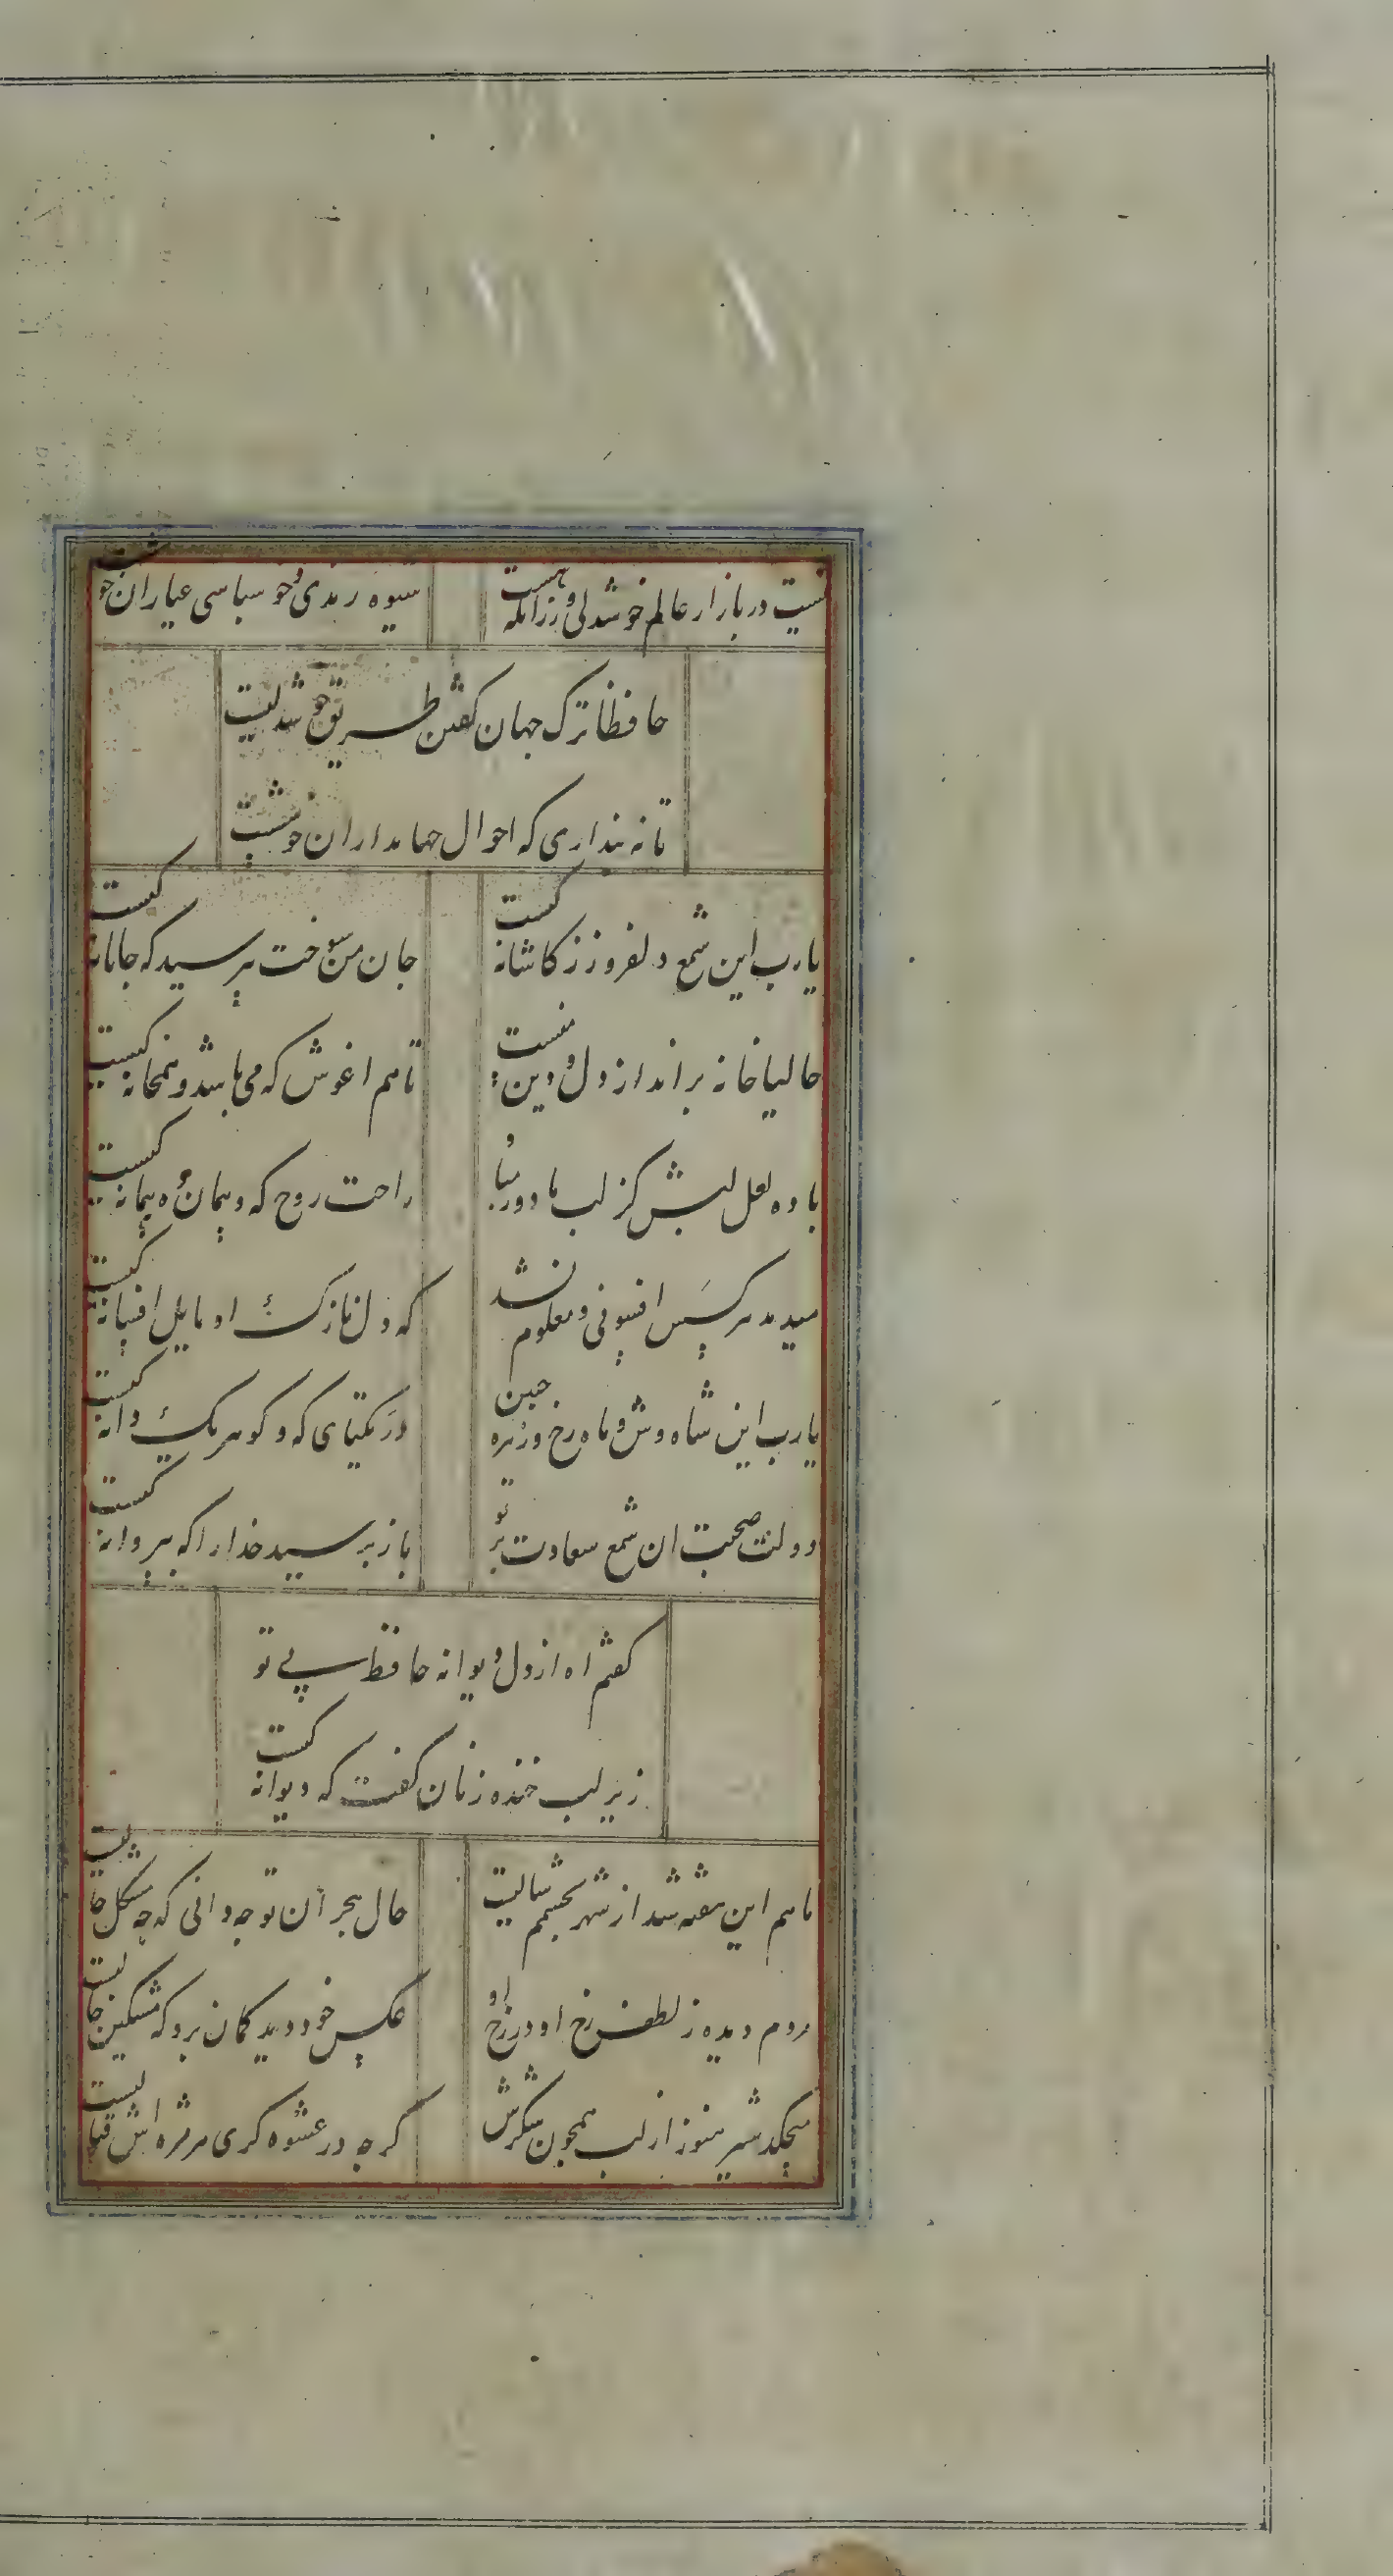 نیست در بازار عالم خوشدلی ور زانکه هست
شیوه رندی و خوشباشی عیاران خوشست
حافظا ترک جهان گفتن طریق خوشدلیست
تا نه پنداری که احوال جهانداران خوشست
یارب این شمع دلفروز ز کاشانه کیست
جان من سوخت بپرسید که جانانه کیست
حالیا خانه برانداز دل و دین منست
تا هم اغوش که می باشد و همخانه کیست
باده لعل لبش کز لب ما دور مباد
راحت روح که و پیمان ده پیمانه کیست
میدمد هر کس افسونی و معلوم نشد
که دل نازک او مایل افسانه کیست
یارب این شاه وش و ماه رخ و زهره جبین
در یکتای که و گوهر یک دانه کیست
دولت صحبت ان شمع سعادت پرتو
باز پرسید خدا را که به پروانه کیست
گفتم اه از دل دیوانه حافظ بی تو
زیر لب خنده زنان گفت که دیوانه کیست
ماهم این هفته شد از شهر بچشمم سالیست
حال هجران تو چه دانی که چه مشکل حالیست
مردم دیده ز لطف رخ او در رخ او
عکس خود دید گمان برد که مشکین خالیست
میچکد شیر هنوز از لب همچون شکرش
گرچه در عشوه گری هر مژه اش قتالیست